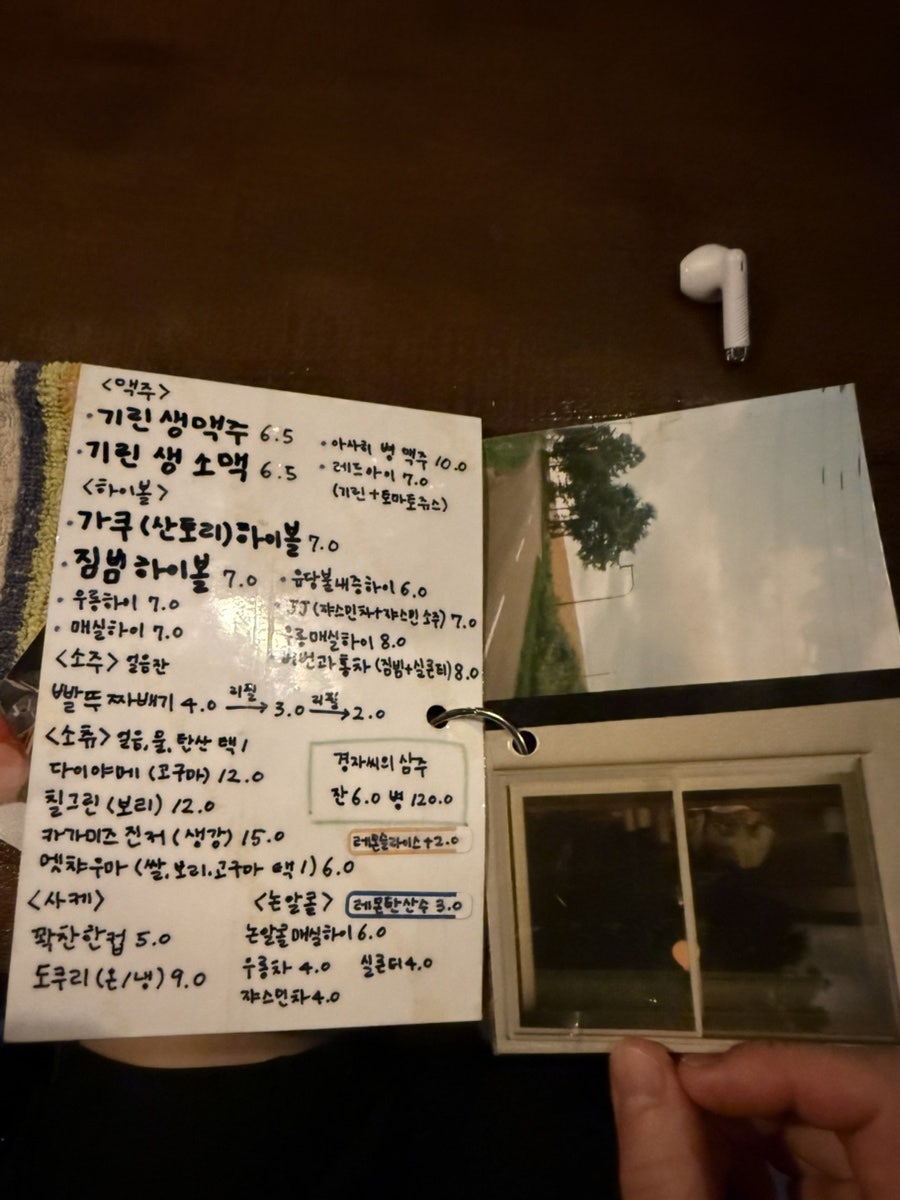 <맥주>
·기린 생맥주 6.5
·기린 생 소맥 6.5
·아사히 병 맥주 10.0
·레드아이 7.0
(기린+토마토쥬스)
<하이볼>
·가쿠(산토리)하이볼 7.0
·짐빔 하이볼 7.0
·우롱하이 7.0
·매실하이 7.0
·유당불내증하이 6.0
·JJ(쟈스민차+쟈스민 소주) 7.0
우롱매실하이 8.0
홍차(짐빔+실론티) 8.0
<소주> 얼음잔
빨뚜 짜배기 4.0 리필→ 3.0 리필→ 2.0
<소츄> 얼음,물,탄산 택1
다이야메 (고구마) 12.0
칠그린 (보리) 12.0
카가미즈 진저 (생강) 15.0
멧챠우마 (쌀,보리,고구마 택1) 6.0
경자씨의 삼주
잔 6.0 병 120.0
레몬슬라이스+2.0
<사케>
꽉찬한컵 5.0
도쿠리 (온/냉) 9.0
<논알콜>
레몬탄산수 3.0
논알콜매실하이 6.0
우롱차 4.0 실론티 4.0
쟈스민차 4.0